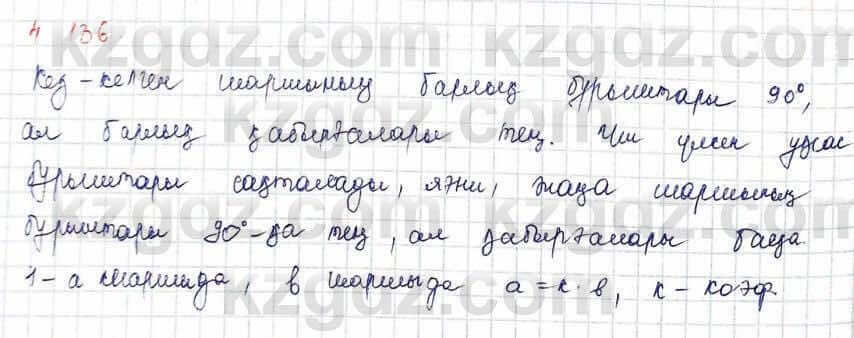 4 136.
Кез-келген шаршының барлық бұрыштары 90°,
ал барлық қабырғалары тең. Үш үлкен ұқсас
бұрыштары сақталады, яғни, жаңа шаршының
бұрыштары 90°-қа тең, ал қабырғалары басқа.
1-а шаршыда, в шаршыда а=к·в, к-коэф.
kzgdz.com